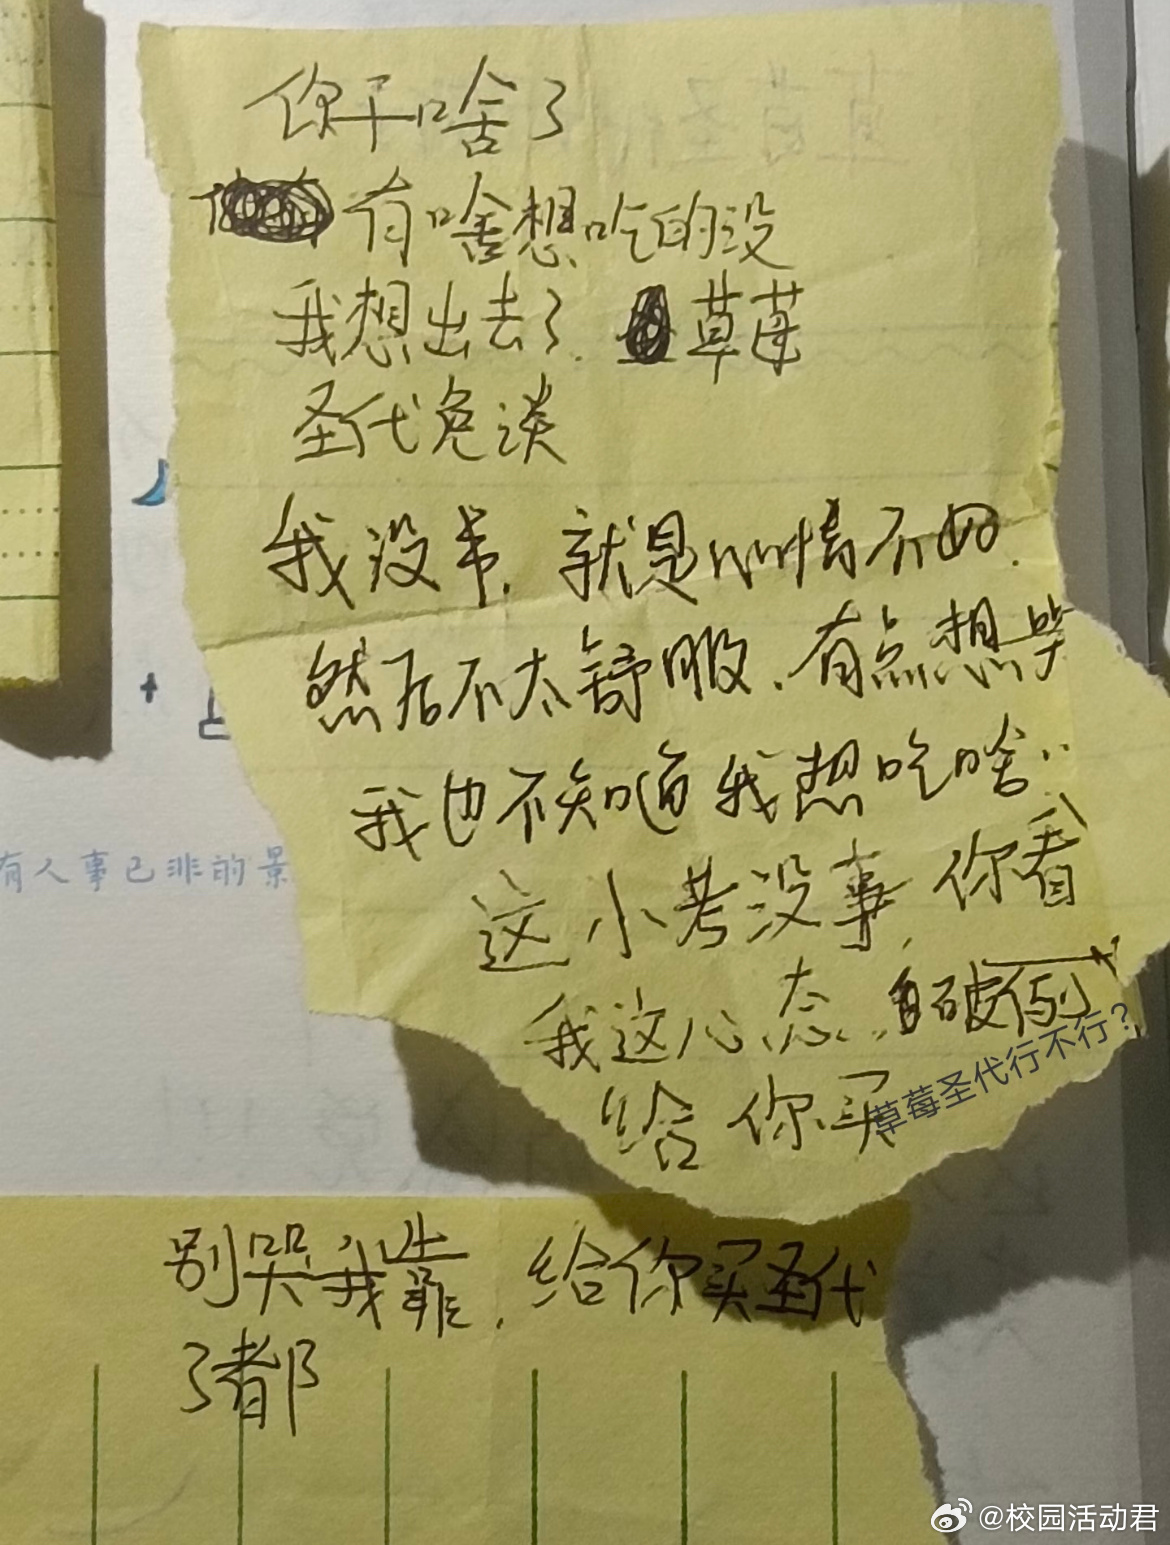 你干啥了
有啥想吃的没
我想出去了. 草莓
圣代免谈
我没事. 就是心情不好.
然后不太舒服. 有点想哭
我也不知道我想吃啥..
这小考没事, 你看
我这心态.. 破例
草莓圣代行不行?
给你买
别哭我靠, 给你买圣代
了都
有人事已非的景
@校园活动君